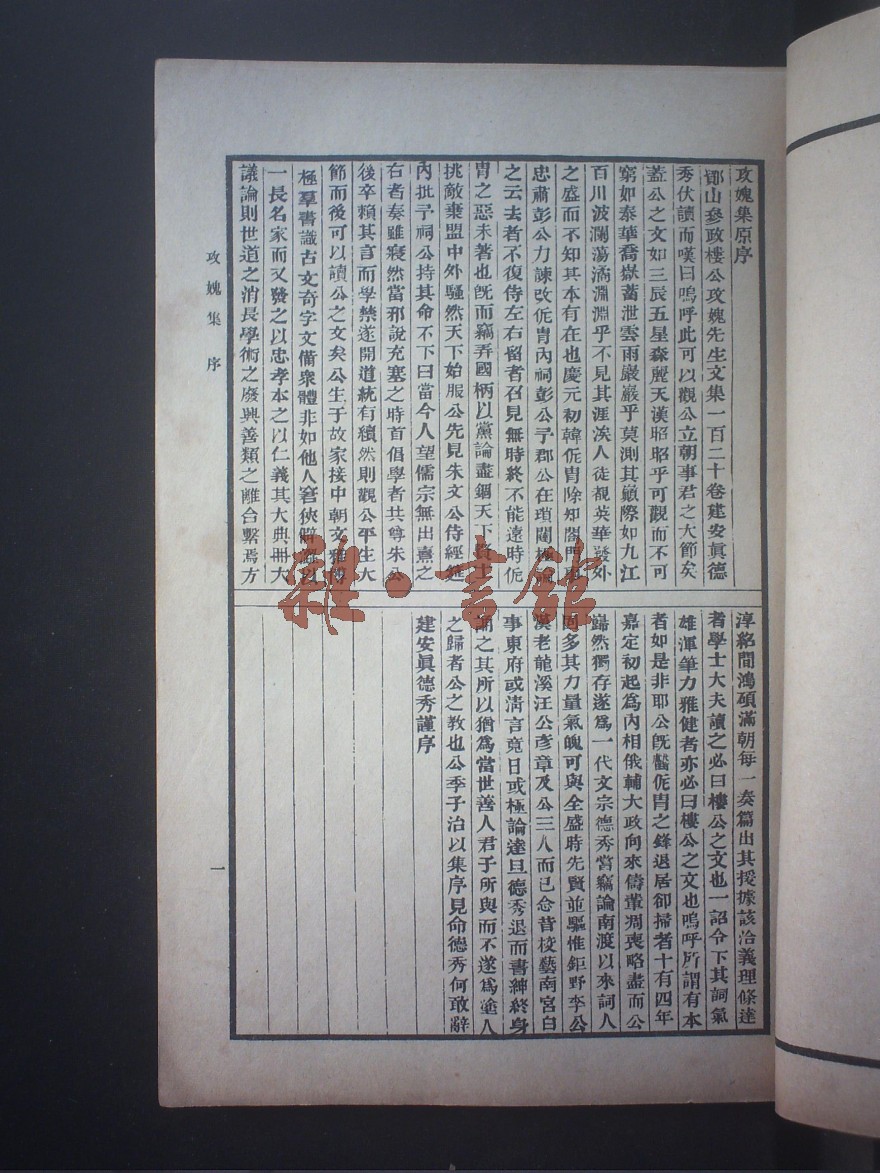 攻媿集原序
鄮山參政樓公攻媿先生文集一百二十卷建安眞德
秀伏讀而嘆曰嗚呼此可以觀公立朝事君之大節矣
蓋公之文如三辰五星森麗天漢昭昭乎可觀而不可
窮如泰華喬嶽蓄泄雲雨巖巖乎莫測其巓際如九江
百川波瀾蕩潏淵淵乎不見其涯涘人徒覩英華發外
之盛而不知其本有在也慶元初韓侂冑除知閤門事
忠肅彭公力諫改侂冑內祠彭公予郡公在瑣闥極論
之云去者不復侍左右留者召見無時終不能遠時侂
冑之惡未著也旣而竊弄國柄以黨論盡錮天下賢士
挑敵棄盟中外騷然天下始服公先見朱文公侍經筵
內批予祠公持其命不下曰當今人望儒宗無出熹之
右者奏雖寢然當邪說充塞之時首倡學者共尊朱公
後卒賴其言而學禁遂開道統有續然則觀公平生大
節而後可以讀公之文矣公生于故家接中朝文獻博
極羣書識古文奇字文備衆體非如他人窘狹僻澀以
一長名家而又發之以忠孝本之以仁義其大典冊大
議論則世道之消長學術之廢興善類之離合繫焉方
淳紹閒鴻碩滿朝每一奏篇出其援據該洽義理條達
者學士大夫讀之必曰樓公之文也一詔令下其詞氣
雄渾筆力雅健者亦必曰樓公之文也嗚呼所謂有本
者如是非耶公旣齧侂冑之鋒退居卻掃者十有四年
嘉定初起爲內相俄輔大政向來儔輩凋喪略盡而公
巋然獨存遂爲一代文宗德秀嘗竊論南渡以來詞人
固多其力量氣魄可與全盛時先賢並驅惟鉅野李公
漢老龍溪汪公彥章及公三人而已念昔校藝南宮白
事東府或淸言竟日或極論達旦德秀退而書紳終身
誦之其所以猶爲當世善人君子所與而不遂爲塗人
之歸者公之教也公季子治以集序見命德秀何敢辭
建安眞德秀謹序
攻媿集 序
一
雜·書館